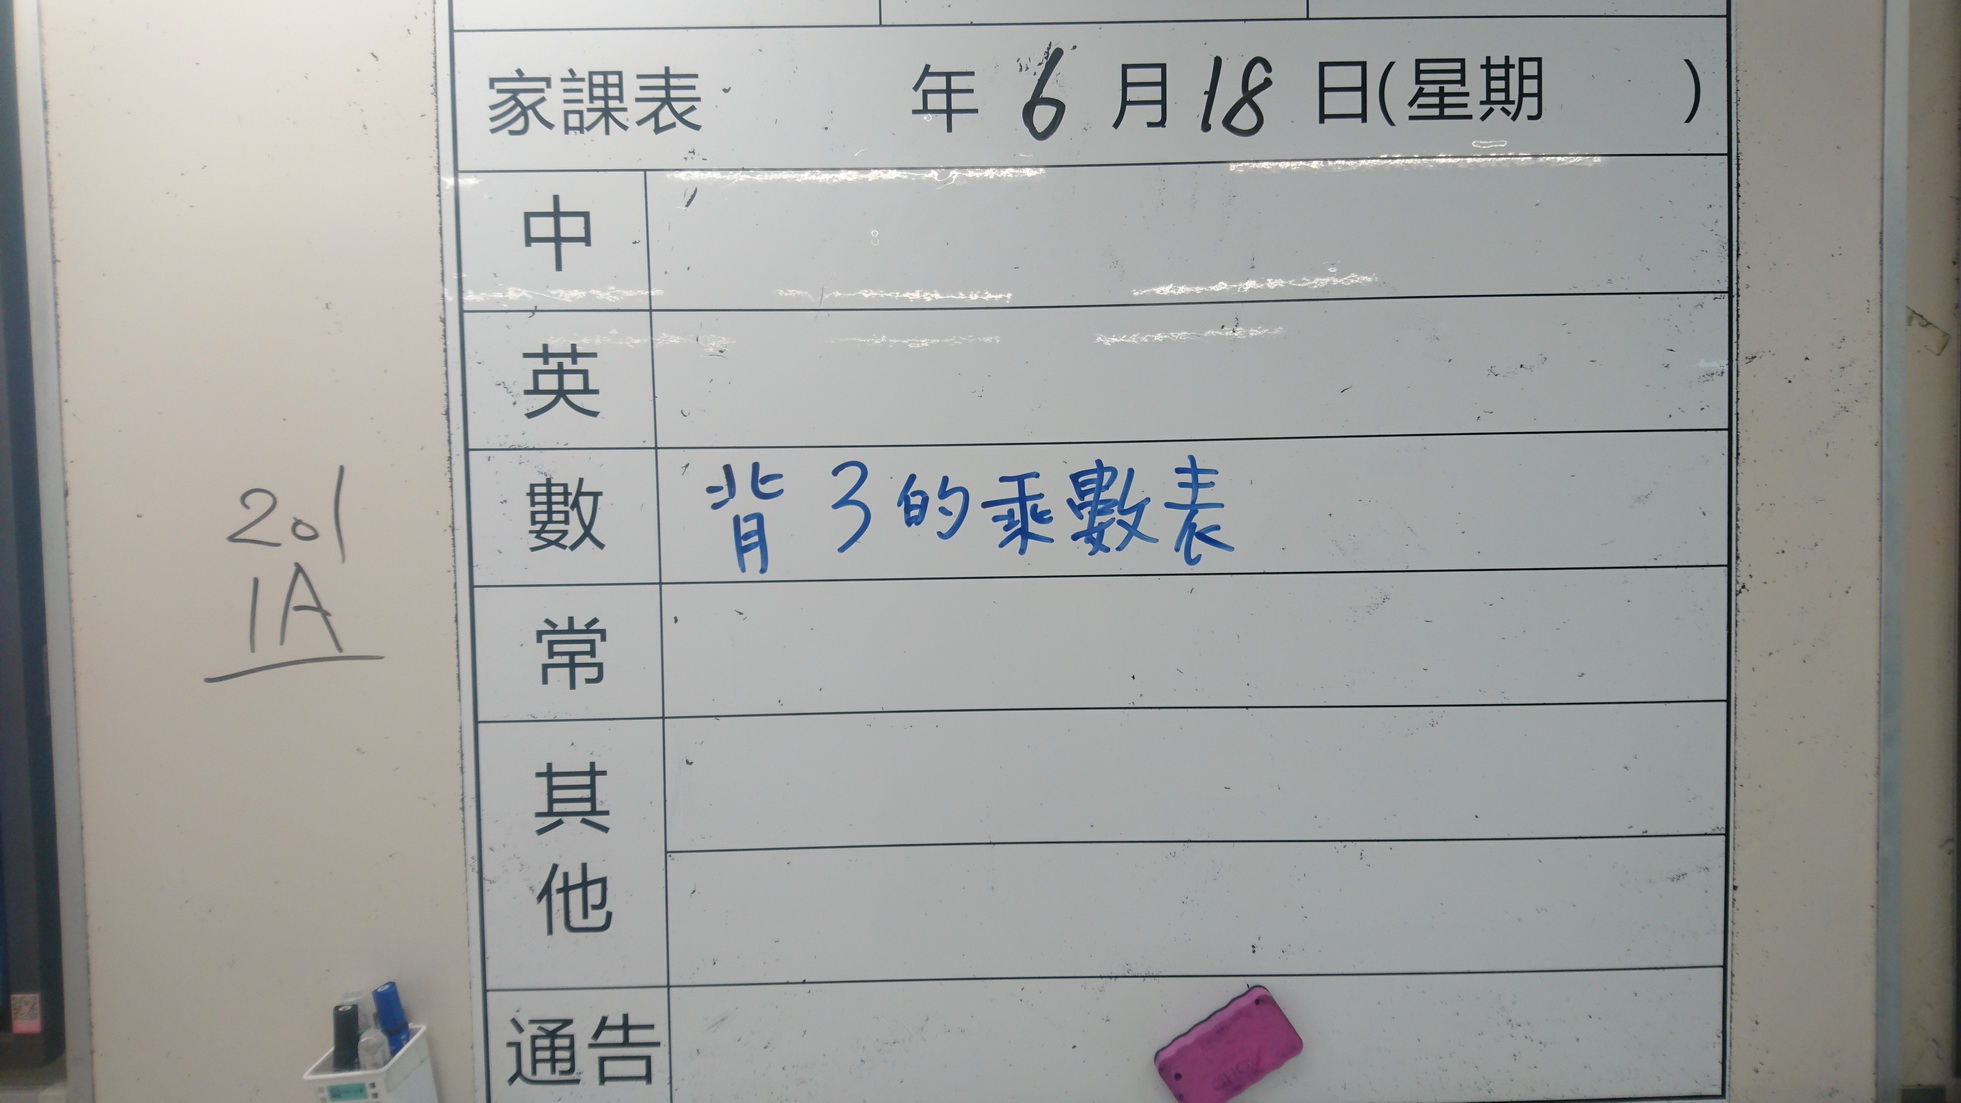 家課表 年 6 月 18 日(星期 )
中
英
數 背 3 的乘數表
常
其他
通告
201
1A